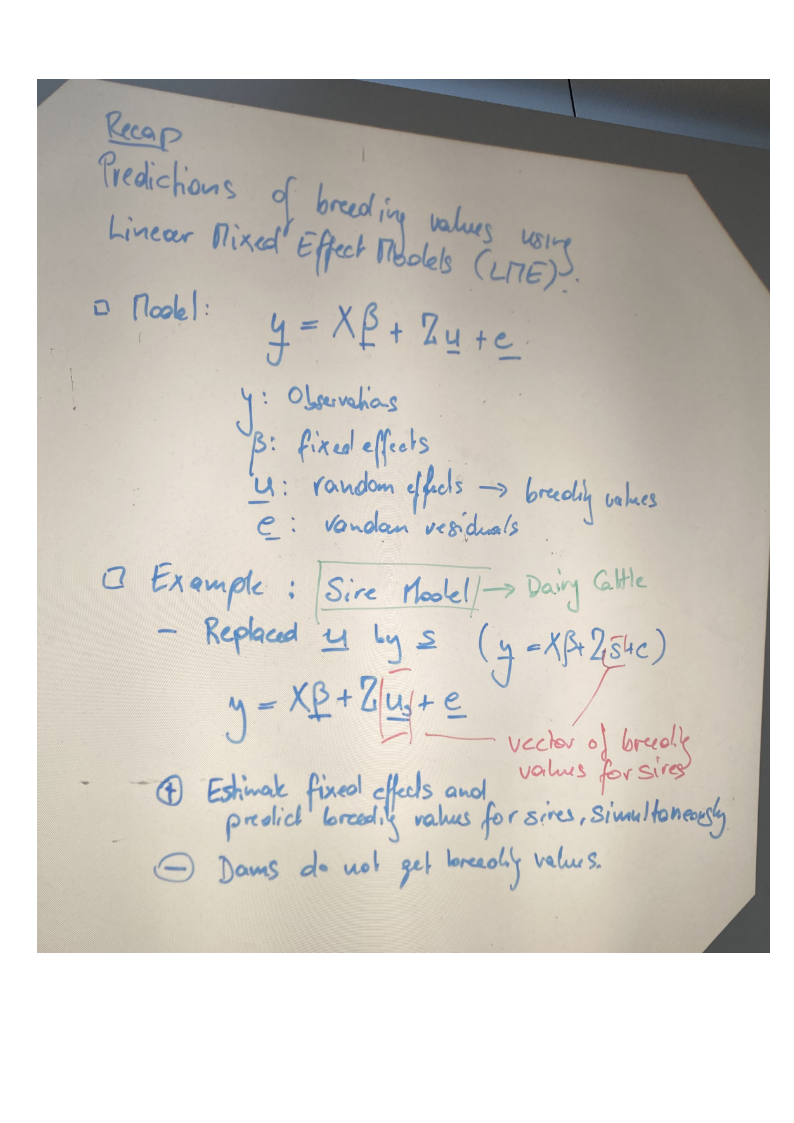 Recap
Predictions of breeding values using
Linear Mixed Effect Models (LME).
Model:
y = Xβ + Zu + e
y: Observations
β: fixed effects
u: random effects → breeding values
e: random residuals
Example: Sire Model → Dairy Cattle
- Replaced u by s (y = Xβ + Zs + e)
y = Xβ + Zus + e
vector of breeding
values for sires
⊕ Estimate fixed effects and
predict breeding values for sires, simultaneously
⊖ Dams do not get breeding values.